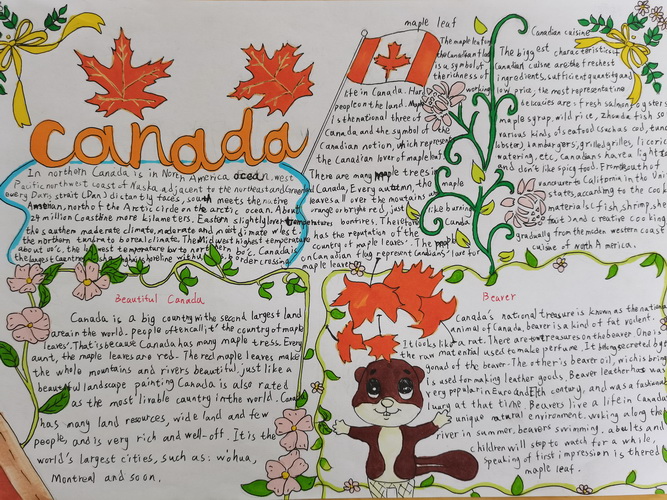 canada
In northern Canada is in North America, ocean, west
Pacific, northwest coast of Alaska adjacent to the northeast and
every Davis strait Dan) distantly faces, south meets the native
American, north of the Arctic circle on the arctic ocean. About
24 million Coastline more kilameters, Eastern slightly lower
the southern maderate climate, moderate and moist climate west
the northern tundra to boreal climate. The Midwest highest temperature
about 40°c, the lowest temperature by to northern 60°c. Canada is
the largest Countries longest shoreline without border crossing
maple leaf
The maple leaf on
the Canadian flag
is a symbol of
the richness of
life in Canada. Hard working
people on the land. Maple
Is the national three of
Canada and the symbol of the
Canadian notion, which represent
the Canadian lover of maple leaf.
There are many maple trees in
Canada, Every autumn, the maple
leaves all over the mountains are
range or bright red, just like burning
bonfires. Therefore Canada
has the reputation of the
country of maple leaves. The people
on Canadian flag represent Canadians' love for
maple leaves
Canadian cuisine
The biggest characteristics of
Canadian cuisine are: the freshest
ingredients, sufficient quantity and
low price, the most representative
delicacies are: fresh salmon, oyster
maple syrup, wild rice, Zhoudu fish so
various kinds of seafood (such as cod, tuna
lobster), hamburgers, grilled grilles, licorice
watering, etc, Canadians have a light
and don't like spicy food. From south of
Vancouver to California in the U.
states, according to the local
materials (fish, shrimp, she
fruit) and creative cooking
gradually from the modern western coast
cuisine of north America.
Beautiful Canada
Canada is a big country with the second largest land
area in the world. people often call it' the country of maple
leaves'. That is because Canada has many maple tress. Every
aunt, the maple leaves are red. The red maple leaves make
the whole mountains and rivers beautiful. just like a
beautiful landscape painting Canada is also rated
as the most livable country in the world. Cana
has many land resources, wide land and few
people, and is very rich and well-off. It is the
world's largest cities, such as: wohua,
Montreal and so on.
Beaver
Canada's national treasure is known as the national
animal of Canada. beaver is a kind of fat violent.
It looks like a rat. There are two treasures on the beaver One is
the raw material used to make perfume. It is being secreted by
gonad of the beaver-The other is beaver oil, wich is bring
is used for making leather goods, Beaver leather has was
very popular in Euro and 17th century, and was a fashion
luxury at that time. Beavers live a life in Canada
unique natural environment, walking along the
river in summer, beavers swimming. abults and
children will step to watch for a while,
speaking of first impression is there
maple leaf.